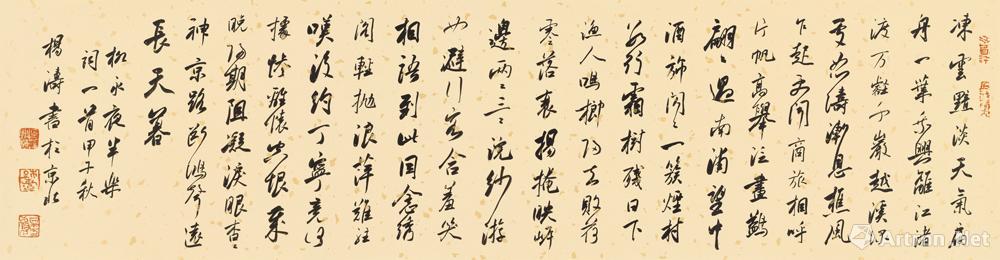 凍雲黯淡天氣扁
舟一葉乘興離江渚
渡万壑千巖越溪深
處怒濤漸息樵風
乍起更聞商旅相呼
片帆高舉泛畫鷁
翩〻過南浦望中
酒旆閃〻一簇煙村
數行霜樹殘日下
漁人鳴榔歸去敗荷
零落衰楊掩映岸
邊兩〻三〻浣紗游
女避行客含羞笑
相語到此因念繡
閣輕拋浪萍難駐
嘆後約丁寧竟何
據慘離懷空恨歲
晚歸期阻凝淚眼杳〻
神京路斷鴻聲遠
長天暮
柳永夜半樂
詞一首甲午秋
楊濤書於京北
Artron.Net